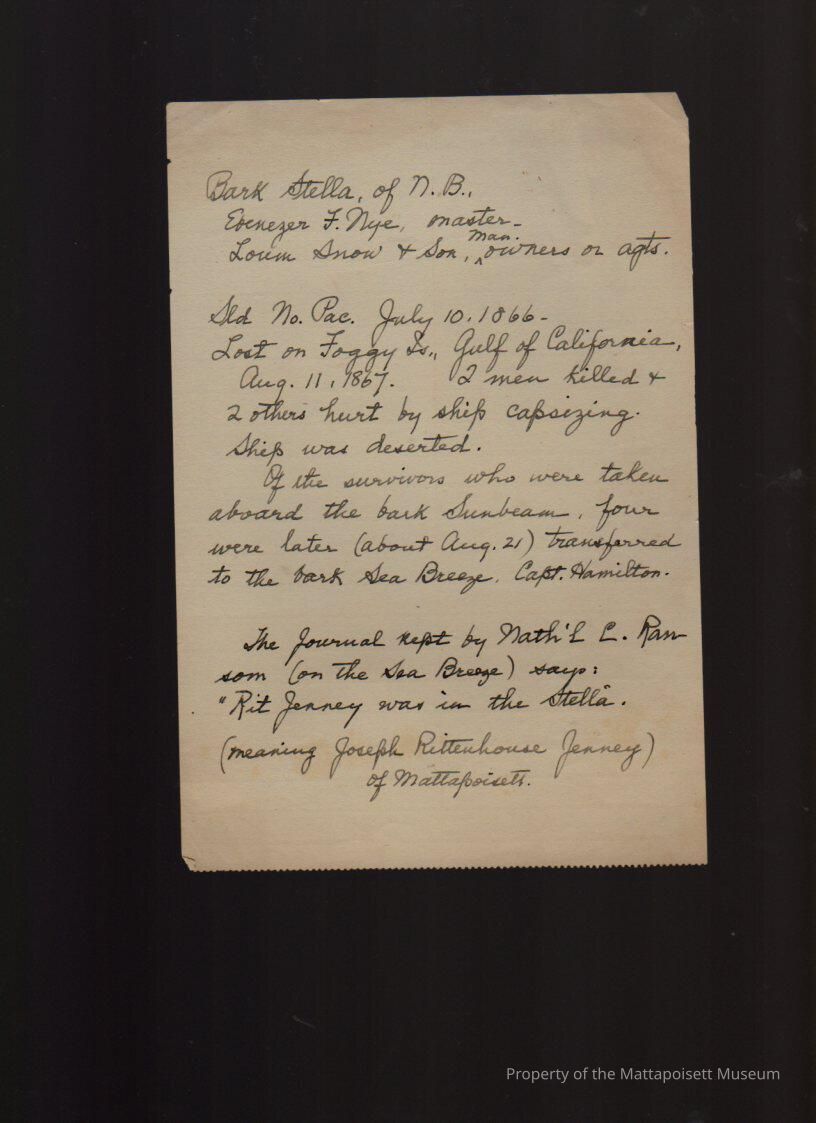 Bark Stella, of N. B.,
Ebenezer F. Nye, master-
Loum Snow & Son, man. owners or agts.
Sld No. Pac. July 10, 1866-
Lost on Foggy Is., Gulf of California,
Aug. 11, 1867. 2 men killed &
2 others hurt by ship capsizing.
Ship was deserted.
Of the survivors who were taken
aboard the bark Sunbeam, four
were later (about Aug. 21) transferred
to the bark Sea Breeze, Capt. Hamilton.
The Journal kept by Nath'l C. Ran-
som (on the Sea Breeze) says:
"Rit Jenney was in the Stella".
(meaning Joseph Rittenhouse Jenney)
of Mattapoisett.
Property of the Mattapoisett Museum